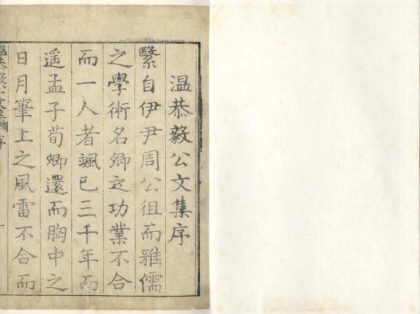 温恭毅公文集序
繄自伊尹周公徂而雅儒
之學術名卿之功業不合
而一人者諷已三千年而
遥孟子荀卿還而胸中之
日月筆上之風雷不合而